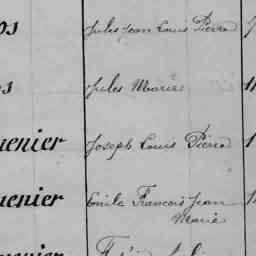 os Jules Jean Louis Pierre
s Jules Marie
uenier Joseph Louis Pierre 1
uenier Emile François Jean
Marie
uenier